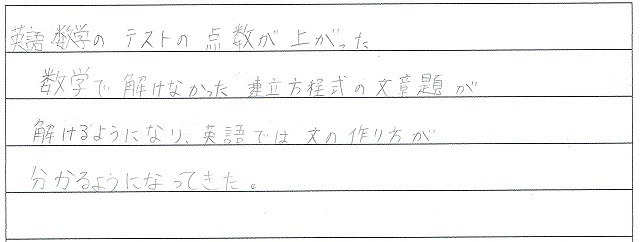 英語 数学の テストの 点数が 上がった
数学で 解けなかった 連立方程式の文章題が
解けるようになり、英語では 文の作り方が
分かるようになってきた。